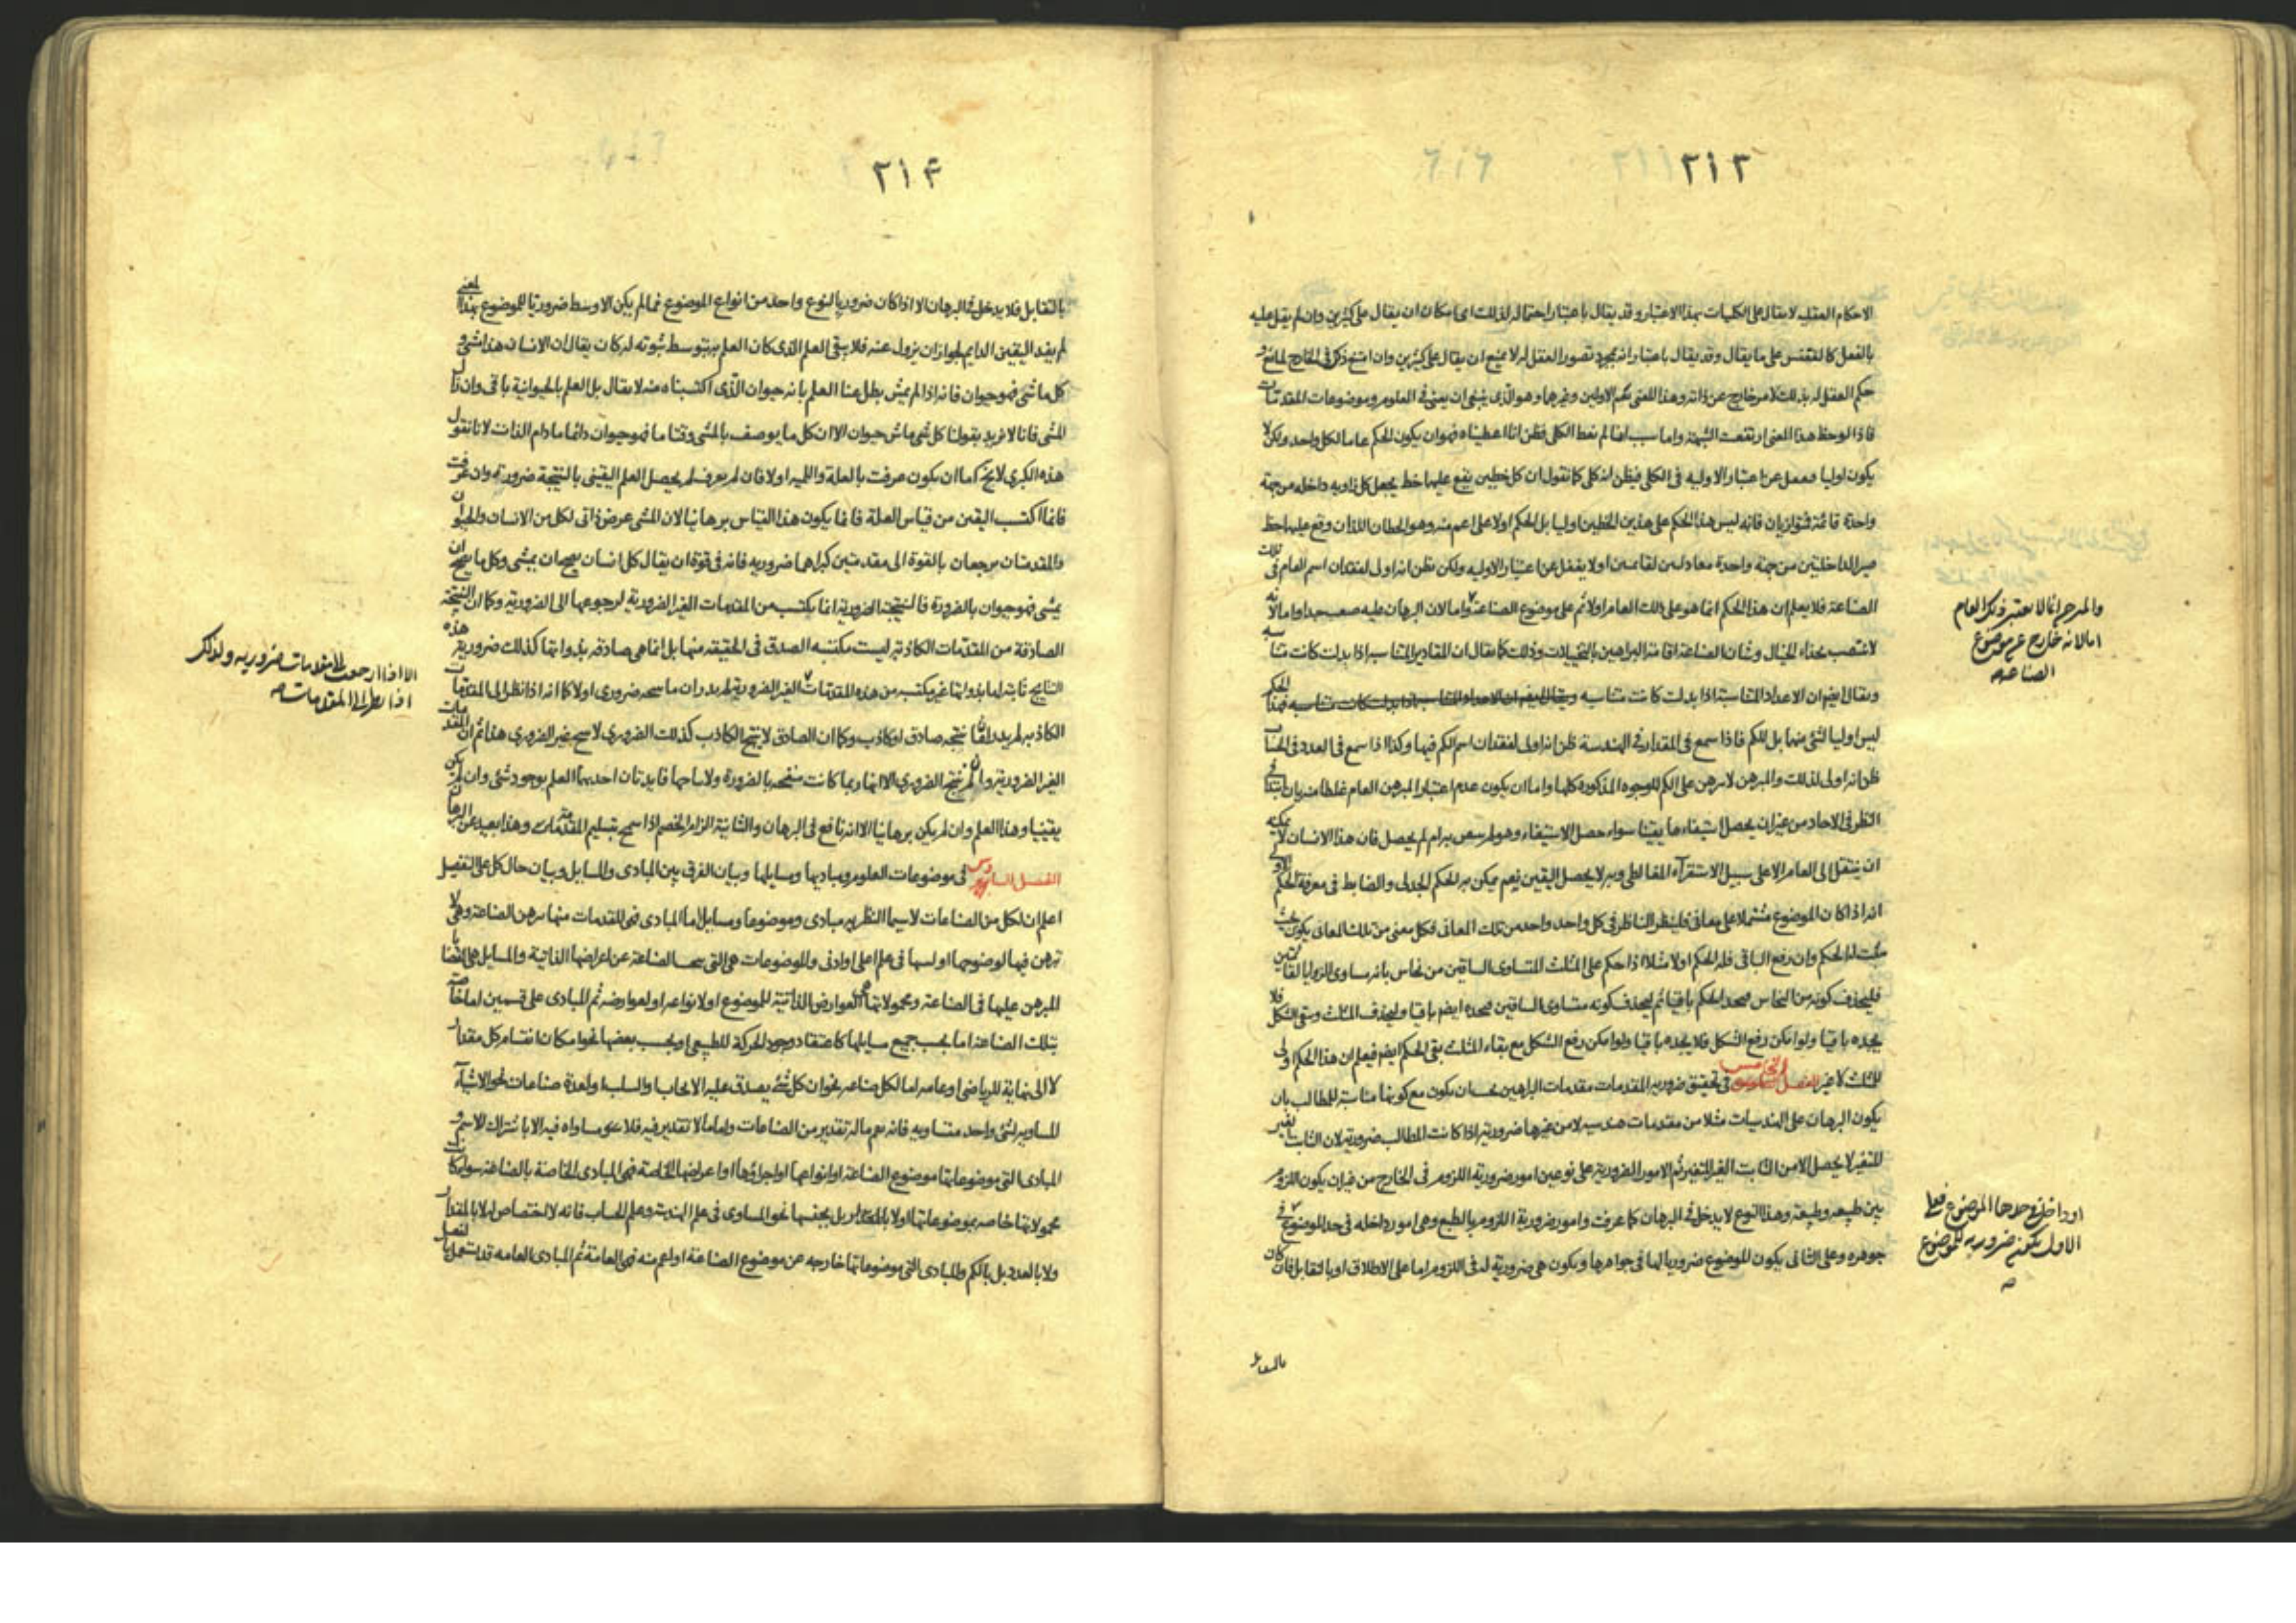 ٢١٣
الاحكام العقلية لا يقال على الكليات بهذا الاعتبار وقد يقال باعتبار احتماله لذلك اى امكان ان يقال على كثيرين وان لم يقل عليه
بالفعل كالققنس على ما يقال وقد يقال باعتبار انه بمجرد تصور العقل له لا يمنع ان يقال على كثيرين وان امتنع ذلك فى الخارج لمانع او
حكم العقل له بذلك لامر خارج عن ذاته وهذا المعنى يعم الاولين وغيرها وهو الذى ينبغى ان يعنى فى العلوم وموضوعات المقدمات
فاذا لوحظ هذا المعنى ارتفعت الشبهة واما سبب انا لم نعط الكلى فظن انا اعطيناه فهو ان يكون الحكم عاما لكل واحد ولكن لا
يكون اوليا فيغفل عن اعتبار الاولية فى الكلى فيظن انه كلى كما نقول ان كل خطين يقع عليهما خط يجعل كل زاوية داخله من جهة
واحدة قائمة متوازيان فانه ليس هذا الحكم على هذين الخطين اوليا بل الحكم اولا على اعم منه وهو الخطان اللذان وقع عليهما خط
صير الداخلتين من جهة واحدة معادلتين لقائمتين اولا يغفل عن اعتبار الاولية ولكن نظن انه اولى لفقدان اسم العام فى تلك
الصناعة فلا يعلم ان هذا الحكم انما هو على ذلك العام اولا ثم على موضوع الصناعة واما لان البرهان عليه صعب جدا واما لانه
لا ينتصب بحذاء الخيال وشان الصناعة اقامة البراهين بالتخيلات وذلك كما يقال ان المقادير المتناسبة اذا بدلت كانت متناسبه
ويقال ايضا ان الاعداد المتناسبة اذا بدلت كانت متناسبه فهذا الحكم
ليس اوليا لشئ منهما بل للكم فاذا سمع فى المقدار فى الهندسة ظن انه اولى لفقدان اسم الكم فيها وكذا اذا سمع فى العدد فى الحساب
ظن انه اولى لذلك والمبرهن لا يبرهن على الكم للوجوه المذكورة كلها واما ان يكون عدم اعتبار المبرهن العام غلطا منه بان ابتدا فى
النظر فى الاحاد من غير ان يحصل استيفاء ما يقينا سواء حصل الاستيفاء وهو لم يسعر به ام لم يحصل فان هذا الانسان لا يمكنه
ان ينتقل الى العام الا على سبيل الاستقراء المغالطى وبه لا يحصل اليقين نعم يمكن به الحكم الجدلى والضابط فى معرفة الحكم الاولى
انه اذا كان الموضوع مشتملا على معان فلينظر الناظر فى كل واحد واحد من تلك المعانى فكل معنى من تلك المعانى يكون بحيث
يثبت له الحكم وان رفع الباقى فله الحكم اولا مثلا اذا حكم على المثلث المتساوى الساقين من نحاس بانه مساوى الزوايا لقائمتين
فليحذف كونه من النحاس فيجد الحكم باقيا ثم ليحذف كونه متساوى الساقين فيجده ايضا باقيا وليحذف المثلث وبقى الشكل فلا
يجده باقيا ولو امكن رفع الشكل فلا يجده باقيا ولو امكن رفع الشكل مع بقاء المثلث بقى الحكم ايضا فيعلم ان هذا الحكم اولى
للمثلث لا غير الفصل الخامس فى تحقيق ضرورية المقدمات مقدمات البراهين يجب ان يكون مع كونها مناسبة للمطالب بان
يكون البرهان على الهندسيات مثلا من مقدمات هندسيه لا من غيرها ضرورية اذا كانت المطالب ضرورية لان الثابت الغير
المتغير لا يحصل الا من الثابت الغير المتغير ثم الامور الضرورية على نوعين امور ضرورية اللزوم فى الخارج من غير ان يكون اللزوم
بين طبيعه وطبيعة وهذا النوع لا يدخل فى البرهان كما عرفت وامور ضرورية اللزوم بالطبع وهى امور داخله فى حد الموضوع فى
جوهره وعلى الثانى يكون الموضوع ضروريا لها فى جواهرها ويكون هى ضرورية له فى اللزوم اما على الاطلاق او بالتقابل فان كان
والمبرهن انما لا يعتبر ذلك العام
اما لانه خارج عن موضوع
الصناعة
او داخل فى حدها الموضوع فعلى
الاول يكون ضروريه للموضوع
صح
بالتقابل
٢١۴
بالتقابل فلا يدخل فى البرهان الا اذا كان ضروريا لنوع واحد من انواع الموضوع فما لم يكن الاوسط ضروريا للموضوع بهذا المعنى
لم يفد اليقين الدايم لجواز ان يزول عنه فلا يبقى العلم الذى كان العلم به بتوسط ثبوته له كان يقال ان الانسان هذا ماشئ و
كل ماشئ فهو حيوان فانه اذا لم يمش بطل عنا العلم بانه حيوان الذى اكتسبناه منه لا يقال بل العلم بالحيوانية باق وان زال
المشى فانا لا نريد بقولنا كل شئ ماش حيوان الا ان كل ما يوصف بالمشى وقتا ما فهو حيوان دائما ما دام الذات لانا نقول
هذه الكبرى لا يخ اما ان يكون عرفت بالعلة واللمية اولا فان لم يعرف لم يحصل العلم اليقينى بالنتيجة ضرورة وان عرفت
فانما اكتسب اليقين من قياس العلة فانما يكون هذا القياس برهانيا لان المشى عرض ذاتى لكل من الانسان والحيوان
والمقدمتان يرجعان بالقوة الى مقدمتين كبراهما ضروريه فانه فى قوة ان يقال كل انسان يصح ان يمشى وكل ما يصح ان
يمشى فهو حيوان بالضرورة فالنتيجة الضرورية انما يكتسب من المقدمات الغير الضرورية لرجوعها الى الضرورية وكما ان النتيجة
الصادقة من المقدمات الكاذبة ليست مكتسبه الصدق فى الحقيقه منها بل انما هى صادقه بذواتها كذلك ضرورية هذه
النتايج ثابتة لها بذواتها غير مكتسبه من هذه المقدمات الغير الضرورية لم يدر ان ما سحه ضرورى اولا كما انه اذا نظر الى المقدمات
الكاذبة لم يدر انها نتيجه صادق او كاذب وكما ان الصادق لا ينتج الكاذب كذلك الضرورى لا ينتج غير الضرورى هذا ثم ان المقدمات
الغير الضرورية وان لم ينتج الضرورى الا انها ربما كانت منتجه بالضرورة ولانتاجها فايدتان احديهما العلم بوجود شئ وان لم يكن
يقينيا وهذا العلم وان لم يكن برهانيا الا انه نافع فى البرهان والثانية الزام الخصم اذا سمح بتسليم المقدمات وهذا بعيد عن البرهان
الفصل السادس فى موضوعات العلوم ومباديها ومسايلها وبيان الفرق بين المبادى والمسايل وبيان حال كل على التفصيل
اعلم ان لكل من الصناعات لاسيما النظريه مبادى وموضوعا ومسايل اما المبادى فهى المقدمات منها يبرهن الصناعة وهى لا
تبرهن فيها لوضوحها او لسها فى علم اعلى او ادنى والموضوعات هى التى يبحث الصناعة عن اعراضها الذاتية والمسايل هى القضايا
المبرهن عليها فى الصناعة ومحمولاتها هى العوارض الذاتية للموضوع اولا نواعه او لعوارضه ثم المبادى على قسمين اما خاصة
بتلك الصناعة اما بحسب جميع مسايلها كاعتقاد وجود الحركة للطبيعى او بحسب بعضها نحو امكان انقسام كل مقدار
لا الى نهاية للرياضى او عامه اما لكل صناعه نحو ان كل شئ يصدق عليه الايجاب والسلب او لعدة صناعات نحو الاشياء
المساويه لشئ واحد متساويه فانه يعم ماله تقدير من الصناعات واما ما لا تقدير فيه فلا مساواه فيه الا باشتراك الاسم و
المبادى التى موضوعاتها موضوع الصناعة او انواعها او اجزاؤها او اعراضها الخاصة فهى المبادى الخاصة بالصناعة سواء كانت
محمولاتها خاصه بموضوعاتها اولا بل بجنسها نحو المساوى فى علم الهندسة وعلم الحساب فانه لا اختصاص له لا بالمقدار
ولا بالعدد بل بالكم والمبادى التى موضوعاتها خارجه عن موضوع الصناعة او اعم منه فهى العامة ثم المبادى العامه قد يستعمل بالفعل
الا اذا رجعت الى مقدمات ضروريه ولذلك
اذا نظر الى المقدمات صح